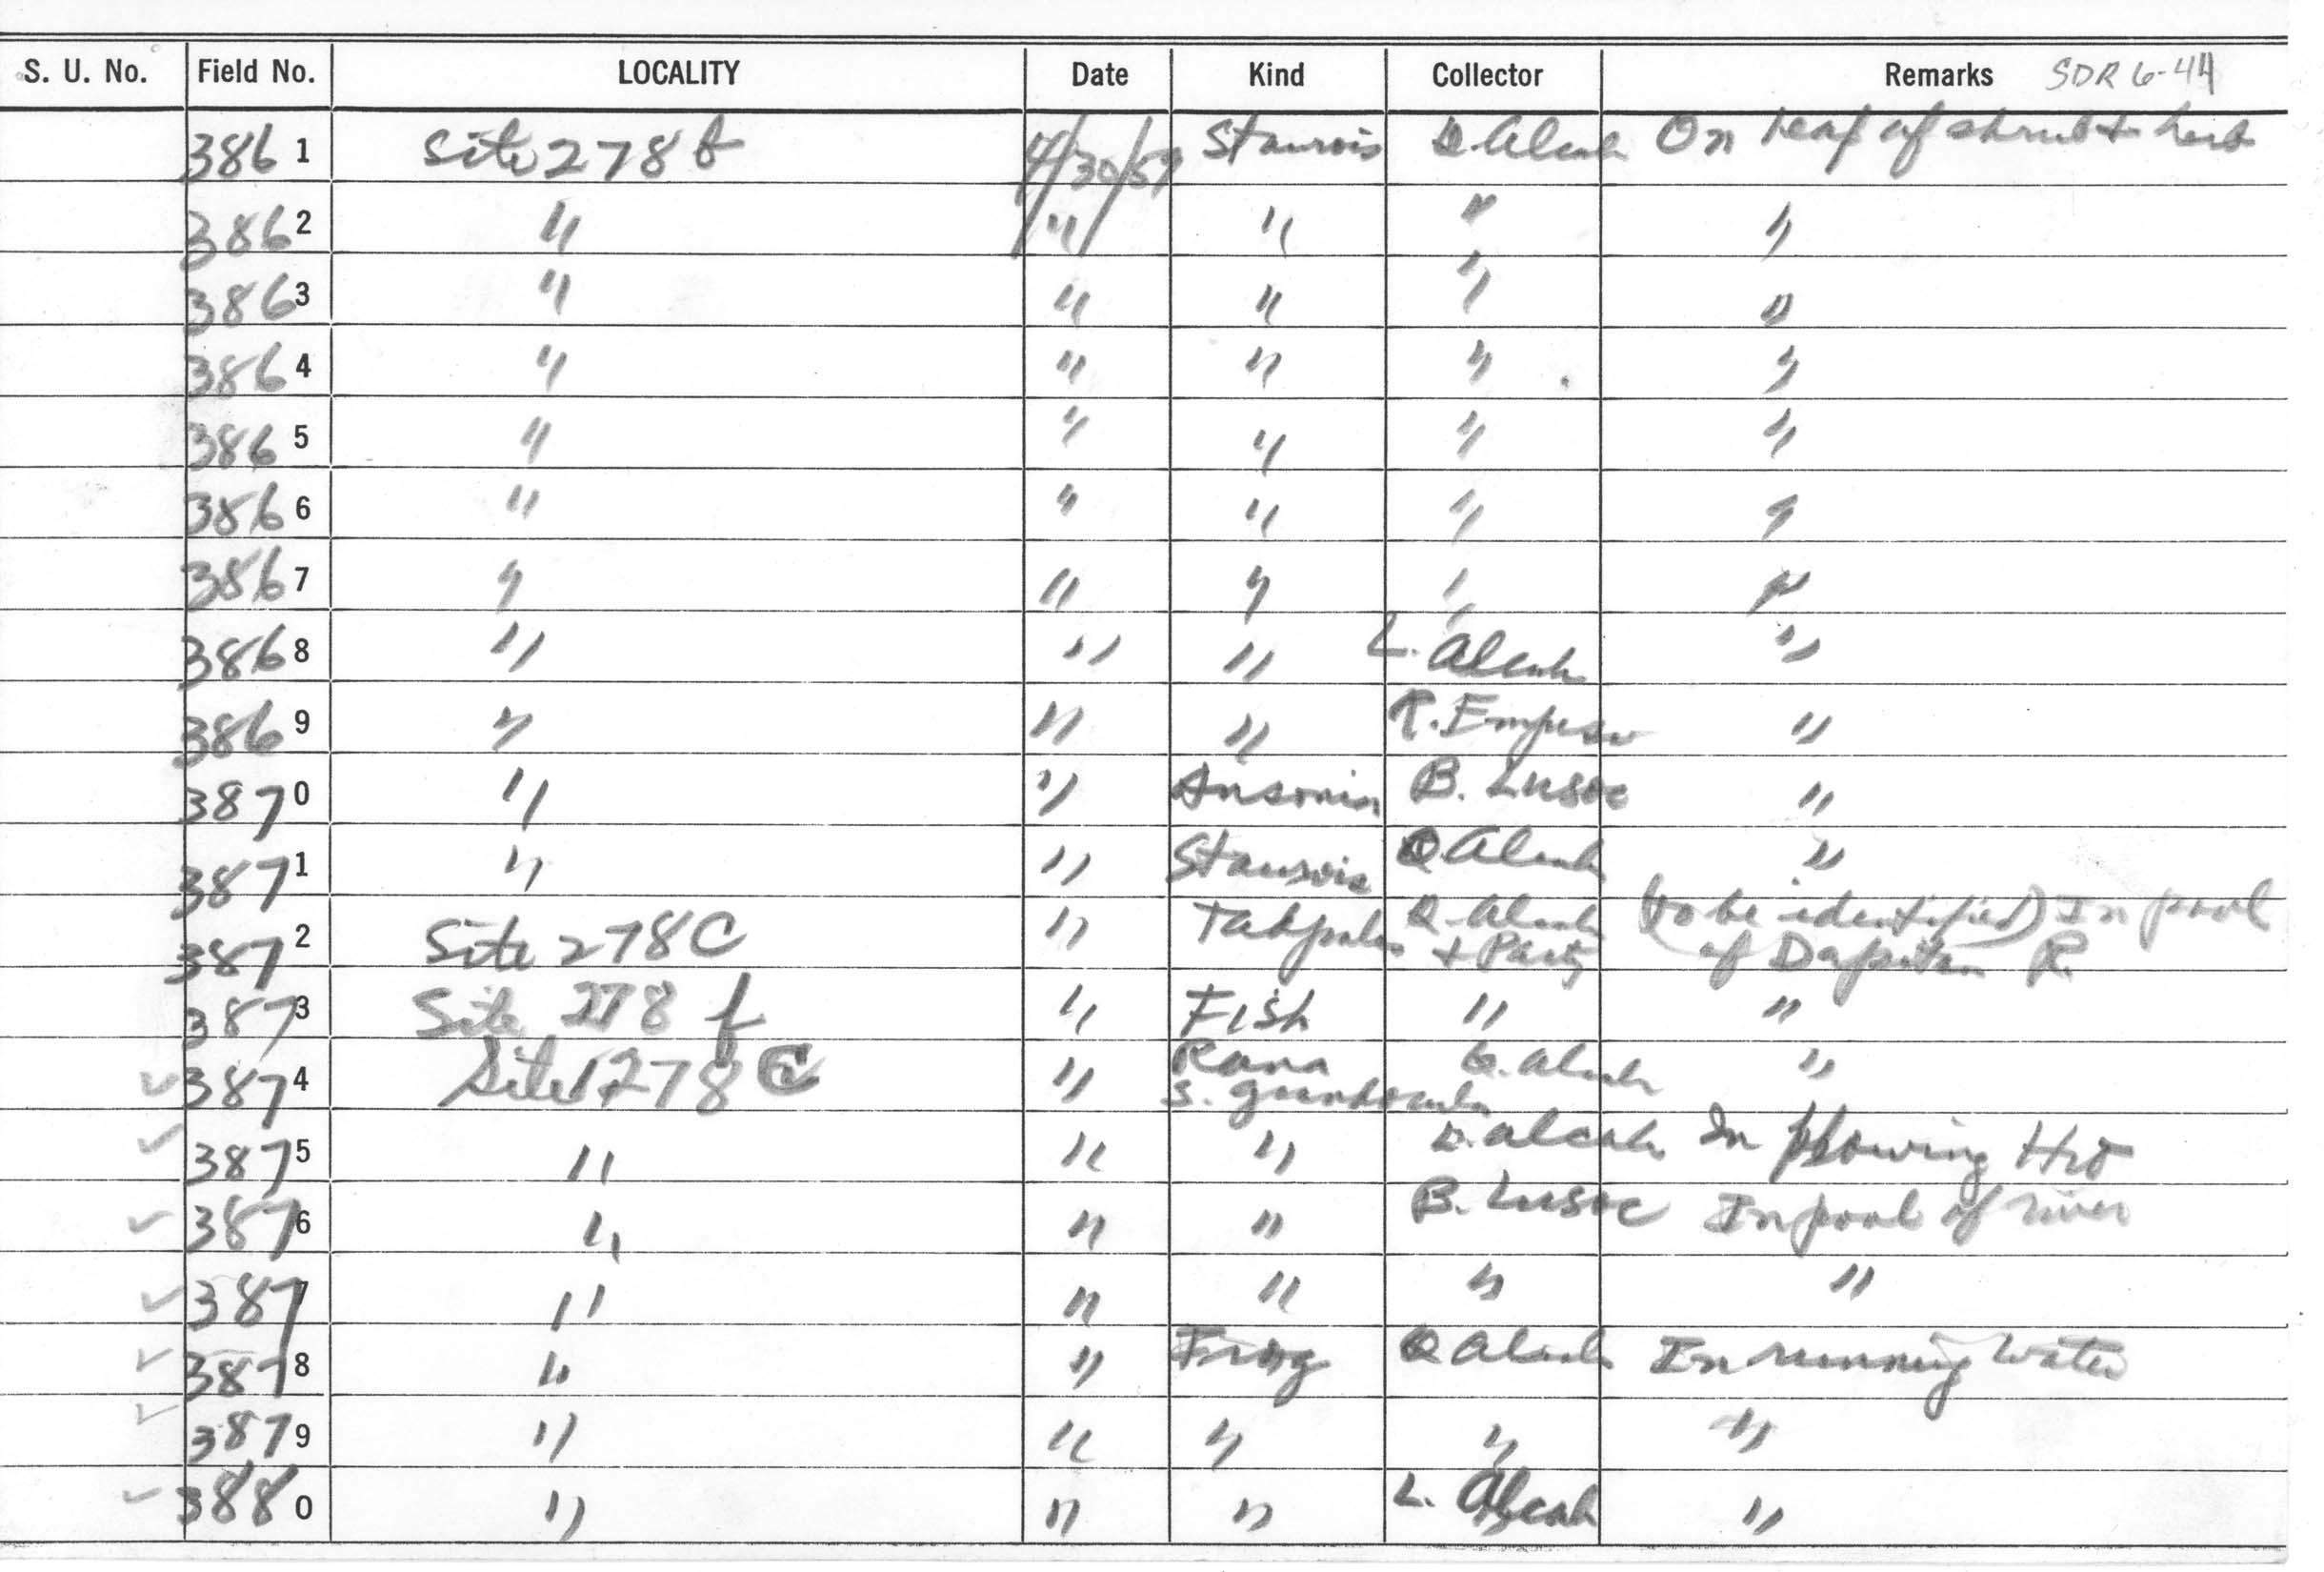 S. U. No. Field No. LOCALITY Date Kind Collector Remarks SDR 6-44
3861 Site 278 f 4/30/59 Staurois Q. Alcala On leaf of shrub + herb
3862 " " " " "
3863 " " " " "
3864 " " " " "
3865 " " " " "
3866 " " " " "
3867 " " " " "
3868 " " " L. Alcala "
3869 " " " R. Empeso "
3870 " " Ansonia B. Lusoc "
3871 " " Staurois Q Alcala "
3872 Site 278C " Tadpoles Q. Alcala + Party (to be identified) In pool of Dapitan R.
3873 Site 278 f " Fish " "
3874 Site 278 C " Rana s. grandocula Q. Alcala "
3875 " " " Q. Alcala In flowing H2O
3876 " " " B. Lusoc In pool of river
3877 " " " " "
3878 " " Frog Q Alcala In running water
3879 " " " " "
3880 " " " L. Alcala "